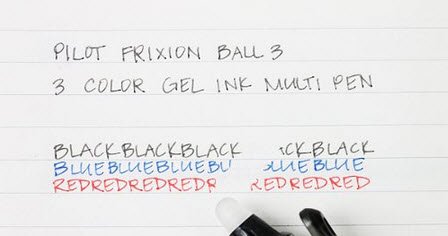 PILOT FRIXION BALL 3
3 COLOR GEL INK MULTI PEN
BLACKBLACKBLACK CKBLACK
BLUEBLUEBLUEBU LUEBLUE
REDREDREDREDR REDREDRED